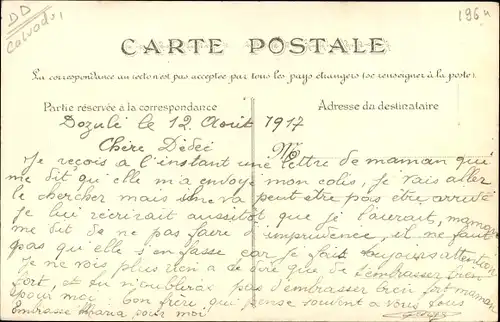 DD
Calvados
1964
CARTE POSTALE
La correspondance au recto n'est pas acceptée par tous les pays étrangers (se renseigner à la poste).
Partie réservée à la correspondance
Adresse du destinataire
Dozulé le 12 Août 1917
Chère Dédéé
M
Je reçois à l'instant une lettre de maman qui
me dit qu'elle m'a envoyé mon colis, je vais aller
le chercher mais il ne va peut être pas être arrivé
je lui récrirait aussitot que je l'aurait, maman
me dit de ne pas faire d'imprudence, il ne faut
pas qu'elle s'en fasse car je fait toujours attention
Je ne vois plus rien a te dire que de t'embrasser bien
fort, et tu n'oublira pas d'embrasser bien fort maman
pour moi. Ton frère qui pense souvent a vous tous
Embrasse Maria pour moi